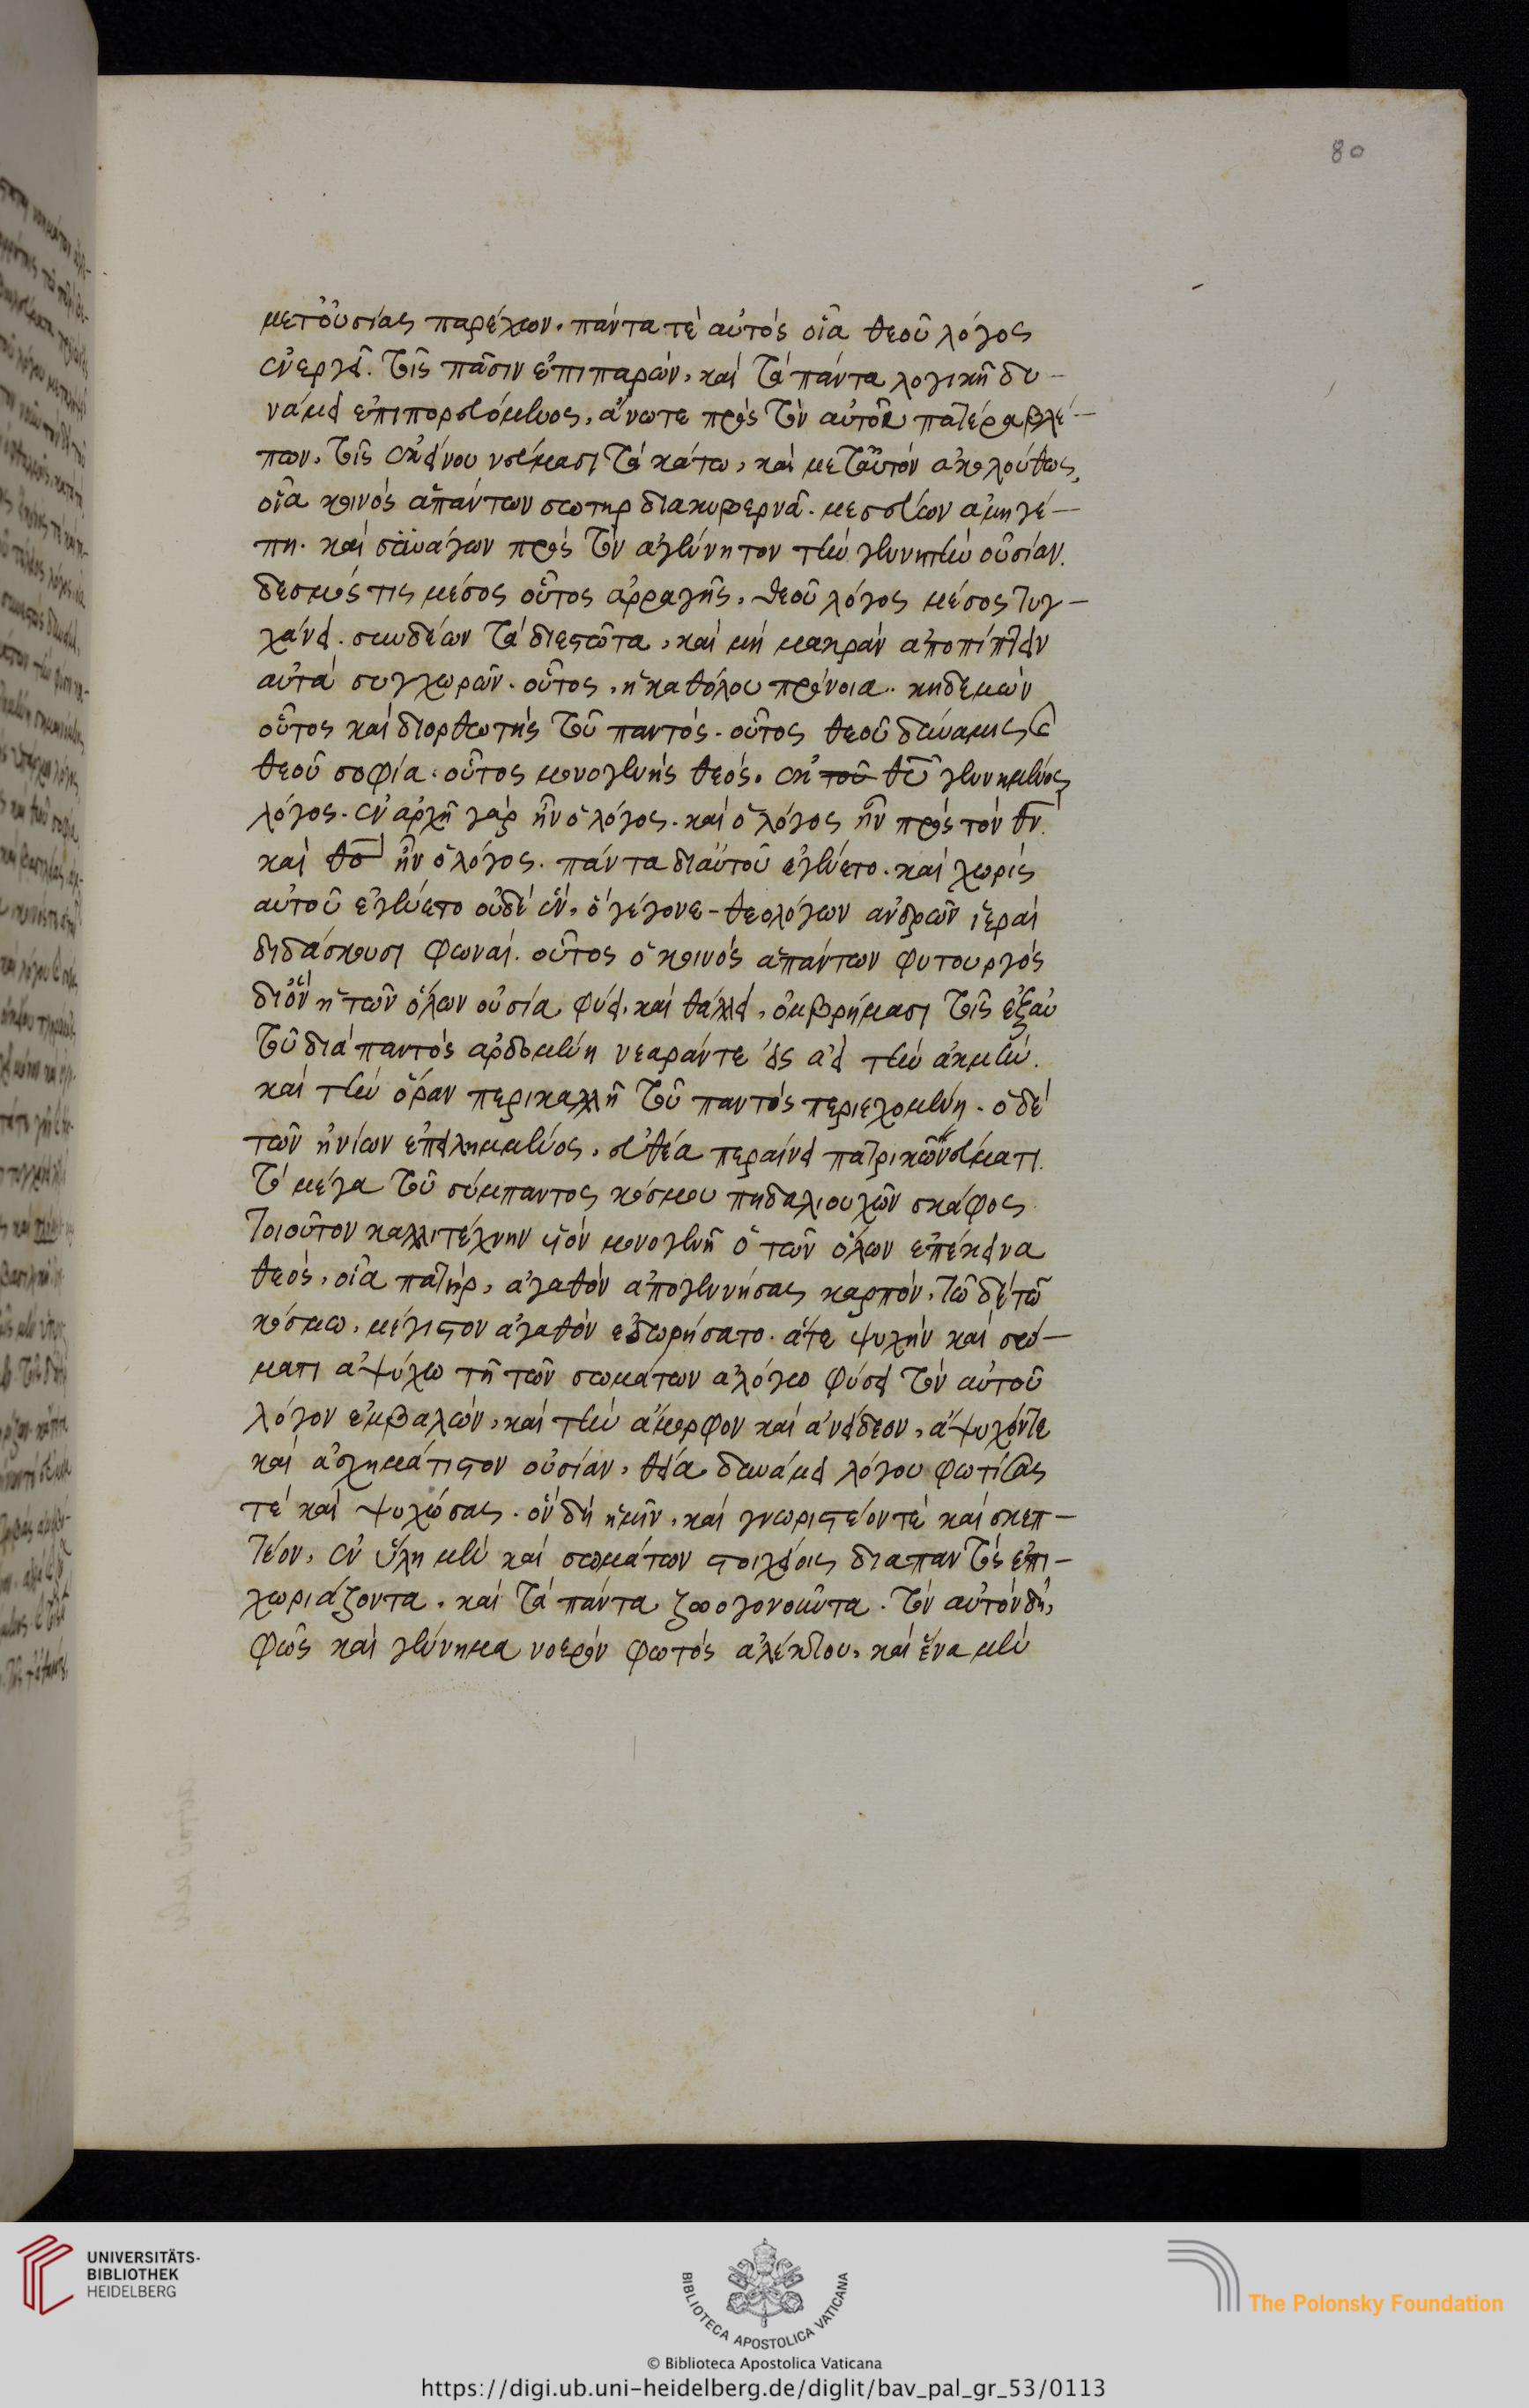 80
μετουσίας παρέχων. πάντα τὲ αὐτὸς οἷα θεοῦ λόγος
ἐνεργεῖ. τοῖς πᾶσιν ἐπιπαρών, καὶ τὰ πάντα λογικῇ δυ-
νάμει ἐπιπορευόμενος, ἄνωτε πρὸς τὸν αὐτοῦ πατέρα βλέ-
πων, τοῖς ἐκείνου νεύμασι τὰ κάτω, καὶ μεταὐτὸν ἀκολούθως,
οἷα κοινὸς ἁπάντων σωτὴρ διακυβερνᾷ. μεσσεύων ἀμηγέ-
πη. καὶ συνάγων πρὸς τὸν ἀγένητον τὴν γενητὴν οὐσίαν.
δεσμός τις μέσος οὗτος ἀρραγής, θεοῦ λόγος μέσος τυγ-
χάνει. συνδέων τὰ διεστῶτα, καὶ μὴ μακρὰν ἀποπίπτειν
αὐτὰ συγχωρῶν. οὗτος, ἡ καθόλου πρόνοια. κηδεμὼν
οὗτος καὶ διορθωτὴς τοῦ παντός. οὗτος θεοῦ δύναμις καὶ
θεοῦ σοφία. οὗτος μονογενὴς θεός. ἐκ τοῦ θῦ γενημένος
λόγος. ἐν ἀρχῇ γὰρ ἦν ὁ λόγος. καὶ ὁ λόγος ἦν πρὸς τὸν θν.
καὶ θσ ἦν ὁ λόγος. πάντα διαὐτοῦ ἐγένετο. καὶ χωρὶς
αὐτοῦ ἐγένετο οὐδὲ ἕν. ὃ γέγονε- θεολόγων ἀνδρῶν ἱεραὶ
διδάσκουσι φωναί. οὗτος ὁ κοινὸς ἁπάντων φυτουργὸς
διὃν ἡ τῶν ὅλων οὐσία, φύει, καὶ θάλλει, ὀμβρήμασι τοῖς ἐξαυ
τοῦ διὰ παντὸς ἀρδομένη νεαράντε εἰς ἀεὶ τὴν ἀκμήν.
καὶ τὴν ὥραν περικαλλῆ τοῦ παντὸς περιεχομένη. ὁ δὲ
τῶν ἡνίων ἐπειλημμένος, εὐθεία περαίνει πατρικῶ νεύματι.
τὸ μέγα τοῦ σύμπαντος κόσμου πηδαλιουχῶν σκάφος
τοιοῦτον καλλιτέχνην υἱὸν μονογενῆ ὁ τῶν ὅλων ἐπέκεινα
θεός, οἷα πατὴρ, ἀγαθὸν ἀπογεννήσας καρπόν, τῶ δὲ τῶ
κόσμω, μέγιστον ἀγαθὸν ἐδωρήσατο. ἅτε ψυχὴν καὶ σώ-
ματι ἀψύχω τῆ τῶν σωμάτων ἀλόγω φύσει τὸν αὐτοῦ
λόγον ἐμβαλών, καὶ τὴν ἄμορφον καὶ ἀνείδεον, ἄψυχόντε
καὶ ἀσχημάτιστον οὐσίαν, θεία δυνάμει λόγου φωτίσας
τὲ καὶ ψυχώσας. ὃν δὴ ἡμῖν, καὶ γνωριστέον τὲ καὶ σκεπ-
τέον, ἐν ὕλη μὲν καὶ σωμάτων στοιχείοις διαπαντὸς ἐπι-
χωριάζοντα, καὶ τὰ πάντα ζωογονοῦντα. τὸν αὐτὸν δὴ,
φῶς καὶ γένημα νοερὸν φωτὸς ἀλέκτου, καὶ ἕνα μὲν
UNIVERSITÄTS-
BIBLIOTHEK
HEIDELBERG
BIBLIOTECA APOSTOLICA VATICANA
© Biblioteca Apostolica Vaticana
The Polonsky Foundation
https://digi.ub.uni-heidelberg.de/diglit/bav_pal_gr_53/0113